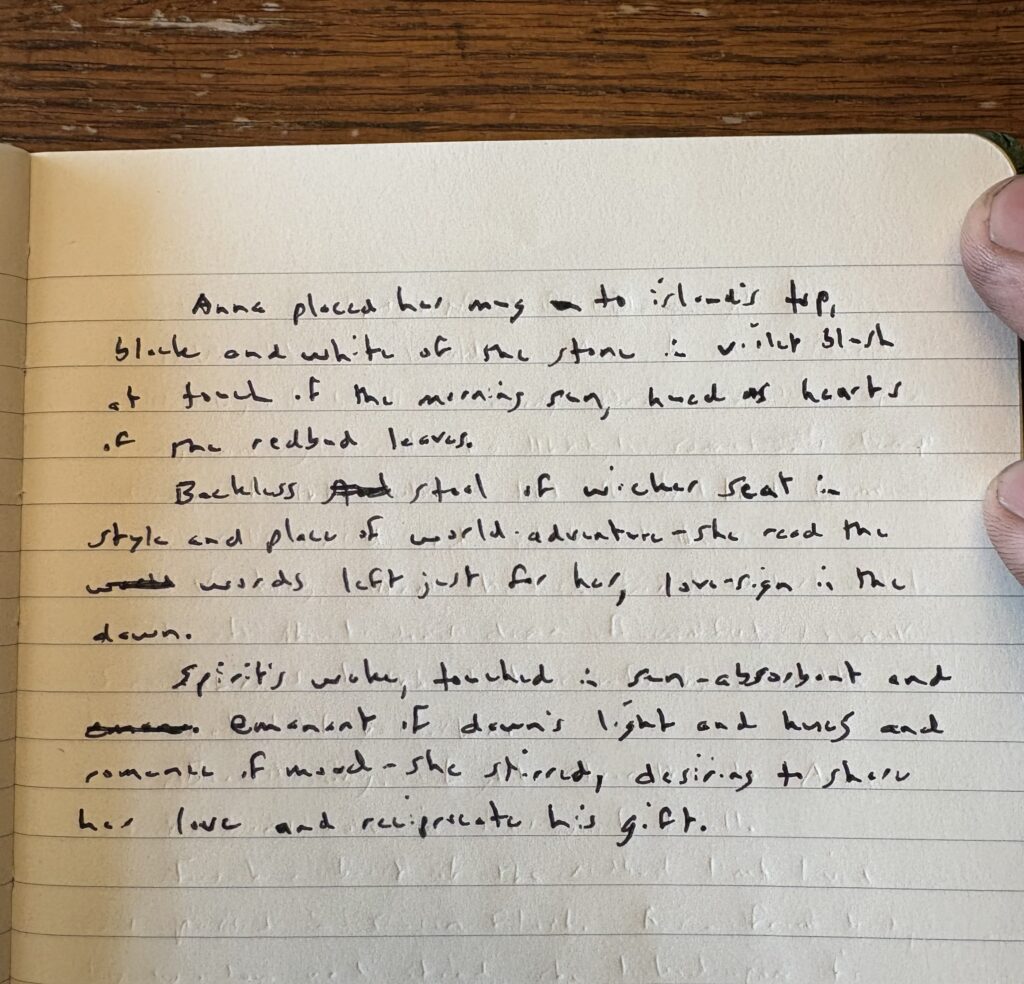 Anna placed her mug to island's top,
black and white of the stone in violet blush
at touch of the morning sun, hued as hearts
of the redbud leaves.
Backless stool of wicker seat in
style and place of world-adventure - she read the
words left just for her, love-sign in the
dawn.
Spirit's wake, touched in sun-absorbent and
emanant of dawn's light and hues and
romance of mood - she stirred, desiring to share
her love and reciprocate his gift.